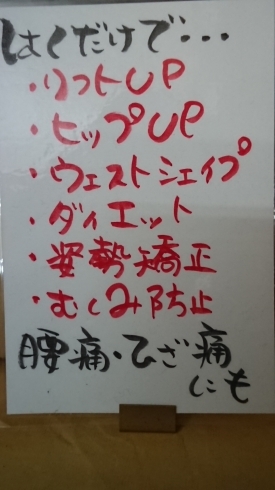 はくだけで・・・
・リフトUP
・ヒップUP
・ウェストシェイプ
・ダイエット
・姿勢矯正
・むくみ防止
腰痛・ひざ痛
にも